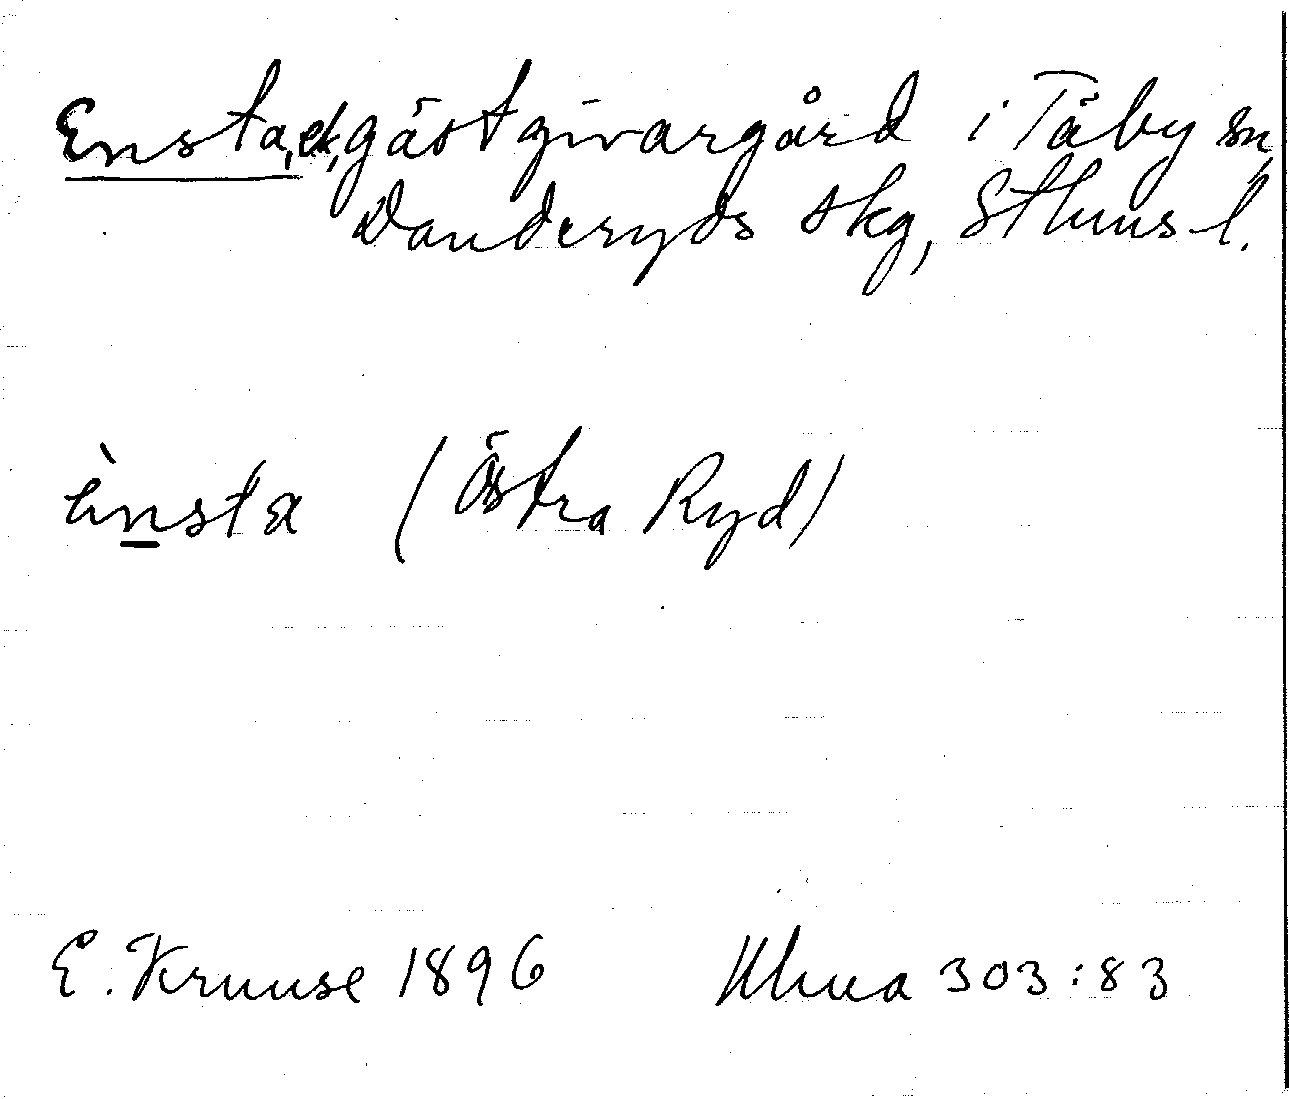 Ensta, ek, gästgivargård i Täby sn,
Danderyds skg, Sthms l.
ènsta (Östra Ryd)
E. Kruuse 1896 Uluua 303:83